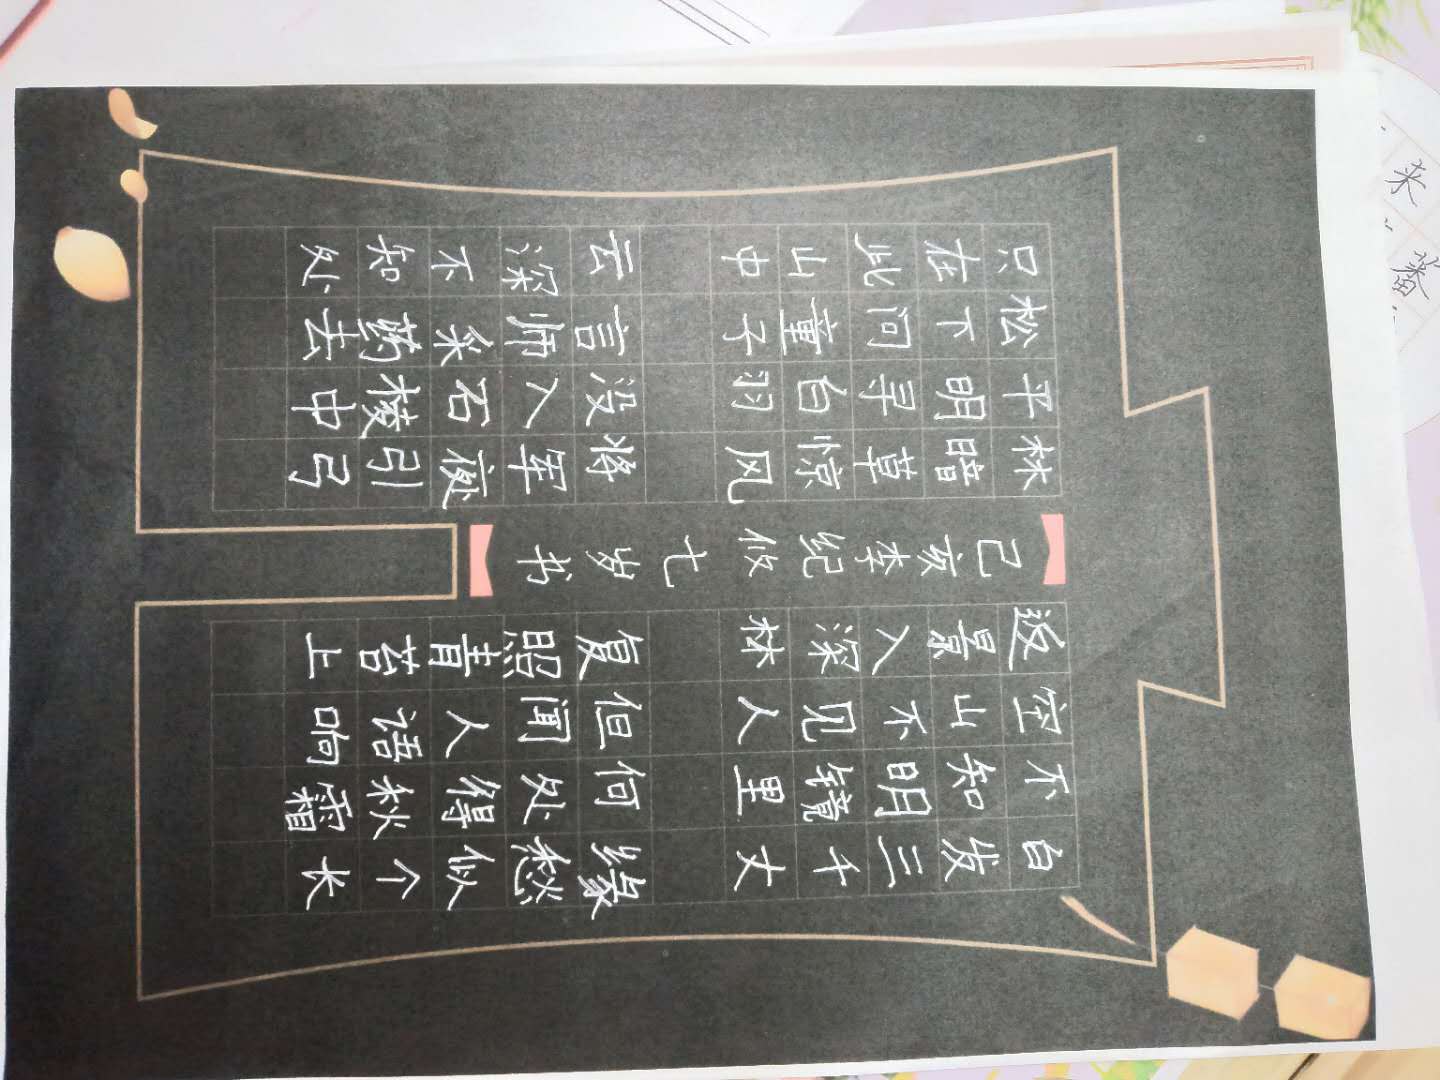 白发三千丈 缘愁似个长
不知明镜里 何处得秋霜
空山不见人 但闻人语响
返景入深林 复照青苔上
己亥李纪攸七岁书
林暗草惊风 将军夜引弓
平明寻白羽 没入石棱中
松下问童子 言师采药去
只在此山中 云深不知处
来
蕃